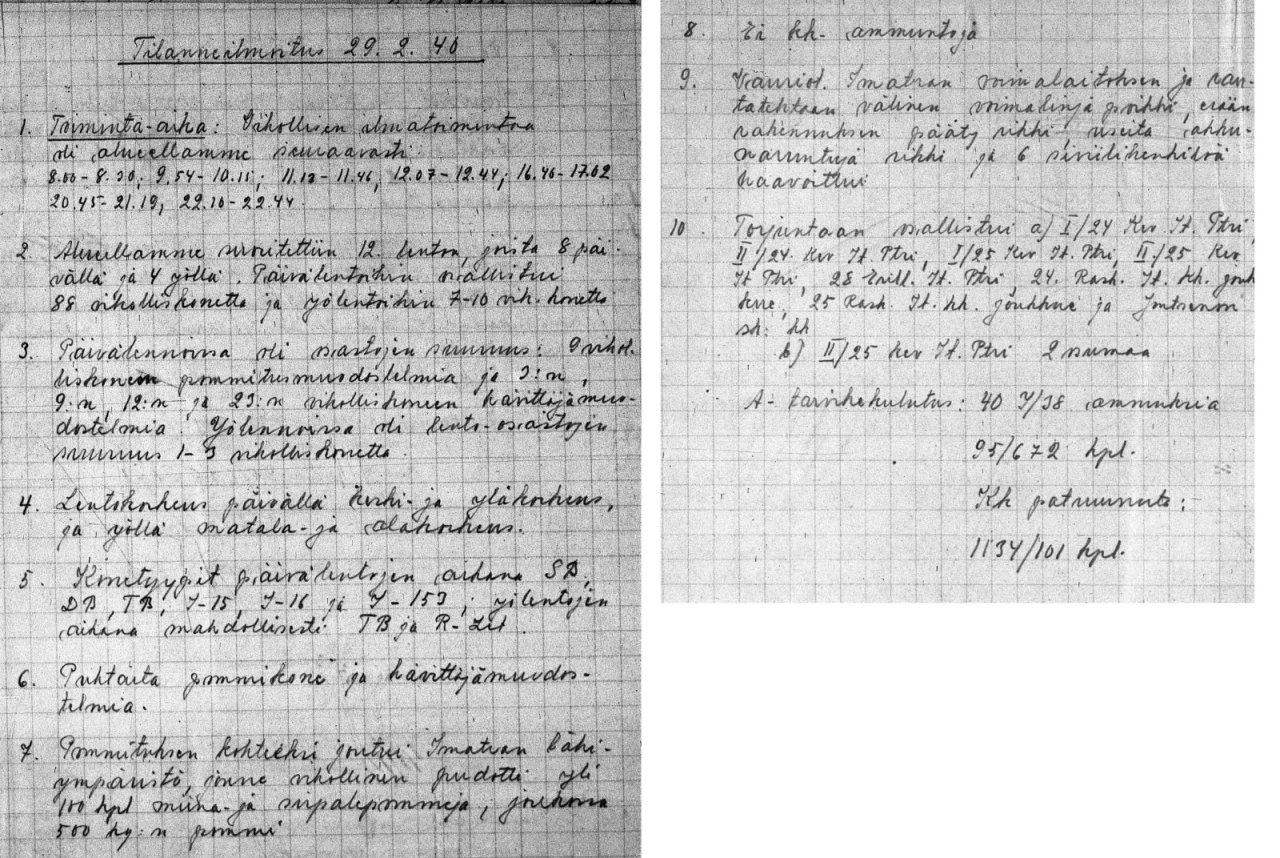 Tilanneilmoitus 29. 2. 40
1. Toiminta-aika: Vihollisen ilmatoimintaa
oli alueellamme seuraavasti:
8.00-8.30; 9.54-10.15; 11.13-11.46, 12.07-12.44; 16.40-17.02
20.45-21.19, 22.10-22.44
2. Alueellamme suoritettiin 12. lentoa, joista 8 päi-
vällä ja 4 yöllä. Päivälentoihin osallistui
88 vihollískonetta ja yölentoihin 7-10 vih. konetta
3. Päivälennoissa oli osastojen suuruus: 9 vihol-
liskoneen pommitusmuodostelmia ja 3:n,
9:n, 12:n ja 23:n vihollískoneen hävittäjämuo-
dostelmia. Yölennoissa oli lento-osastojen
suuruus 1-3 vihollískonetta.
4. Lentokorkeus päivällä keski- ja yläkorkeus,
ja yöllä matala- ja alakorkeus.
5. Konetyypit päivälentojen aikana SB,
DB, TB, I-15, I-16 ja I-153; yölentojen
aikana mahdollisesti TB ja R-Zet.
6. Puhtaita pommikone ja hävittäjämuodos-
telmia.
7. Pommituksen kohteeksi joutui Imatran lähi-
ympäristö, jonne vihollinen pudotti yli
100 kpl miina- ja sirpalepommeja, joukossa
500 kg:n pommi
8. Ei kk- ammuntoja
9. Vauriot. Imatran voimalaitoksen ja rau-
tatehtaan välinen voimalinja poikki, erään
rakennuksen pääty rikki useita akku-
naruutuja rikki ja 6 siviilihenkilöä
haavoittui
10. Torjuntaan osallistui a) I/24 Kev It. Ptri,
II/24. Kev It. Ptri, I/25 Kev It. Ptri, II/25 Kev
It Ptri, 28 Erill. It. Ptri, 24. Rask. It. kk. jouk
kue, 25 Rask. It. kk. joukkue ja Joutsenon
sk: kk
b) II/25 kev It. Ptri 2 sumaa
A- tarvikekulutus: 40 I/38 ammuksia
95/672 kpl.
Kk patruunoita:
1134/101 kpl.